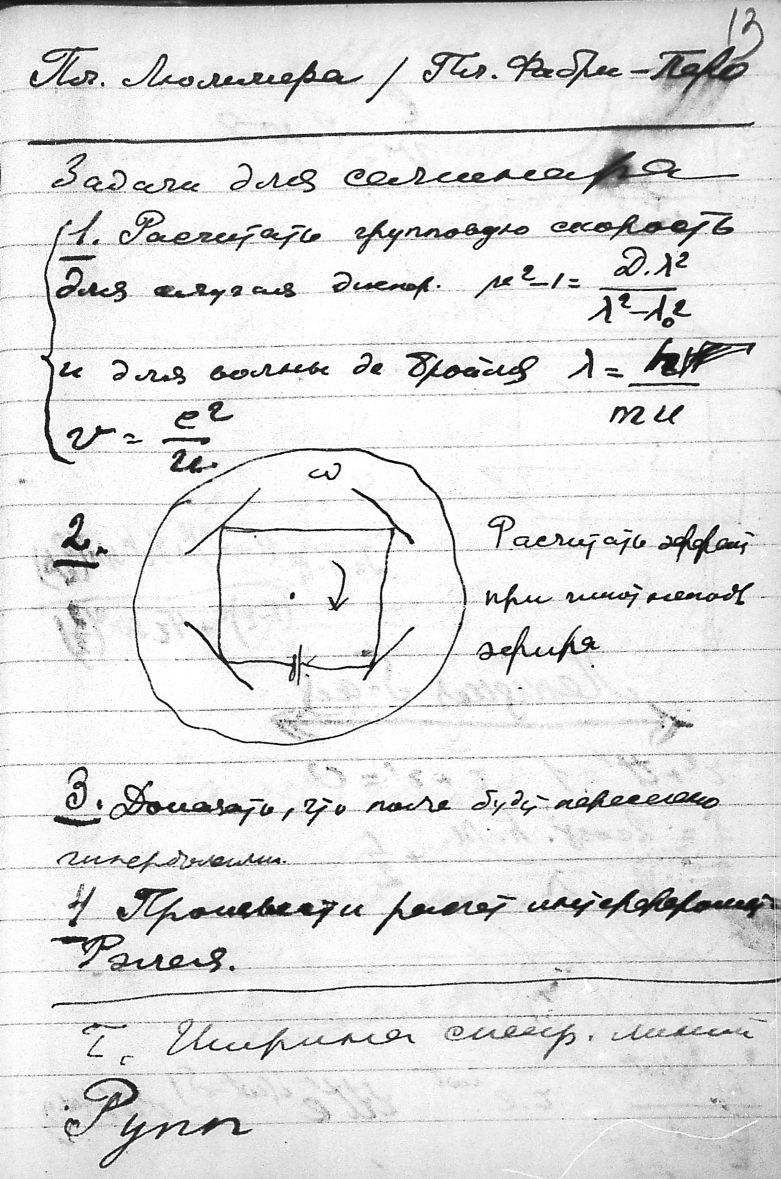 13
Пл. Люммера / Пл. Фабри-Перо
Задачи для семинара
1. Расчитать групповую скорость
для случая диспер. n²-1 = D.λ² / λ²-λ₀²
и для волны де Бройля λ = h / mu
v = c² / u.
ω
2. Расчитать эффект
при
эфира
3. Доказать, что поле будет пересечено
гиперболами.
4 Произвести расчет интерферомет
Рэлея.
Т. Ширина спектр. линий
Рупп